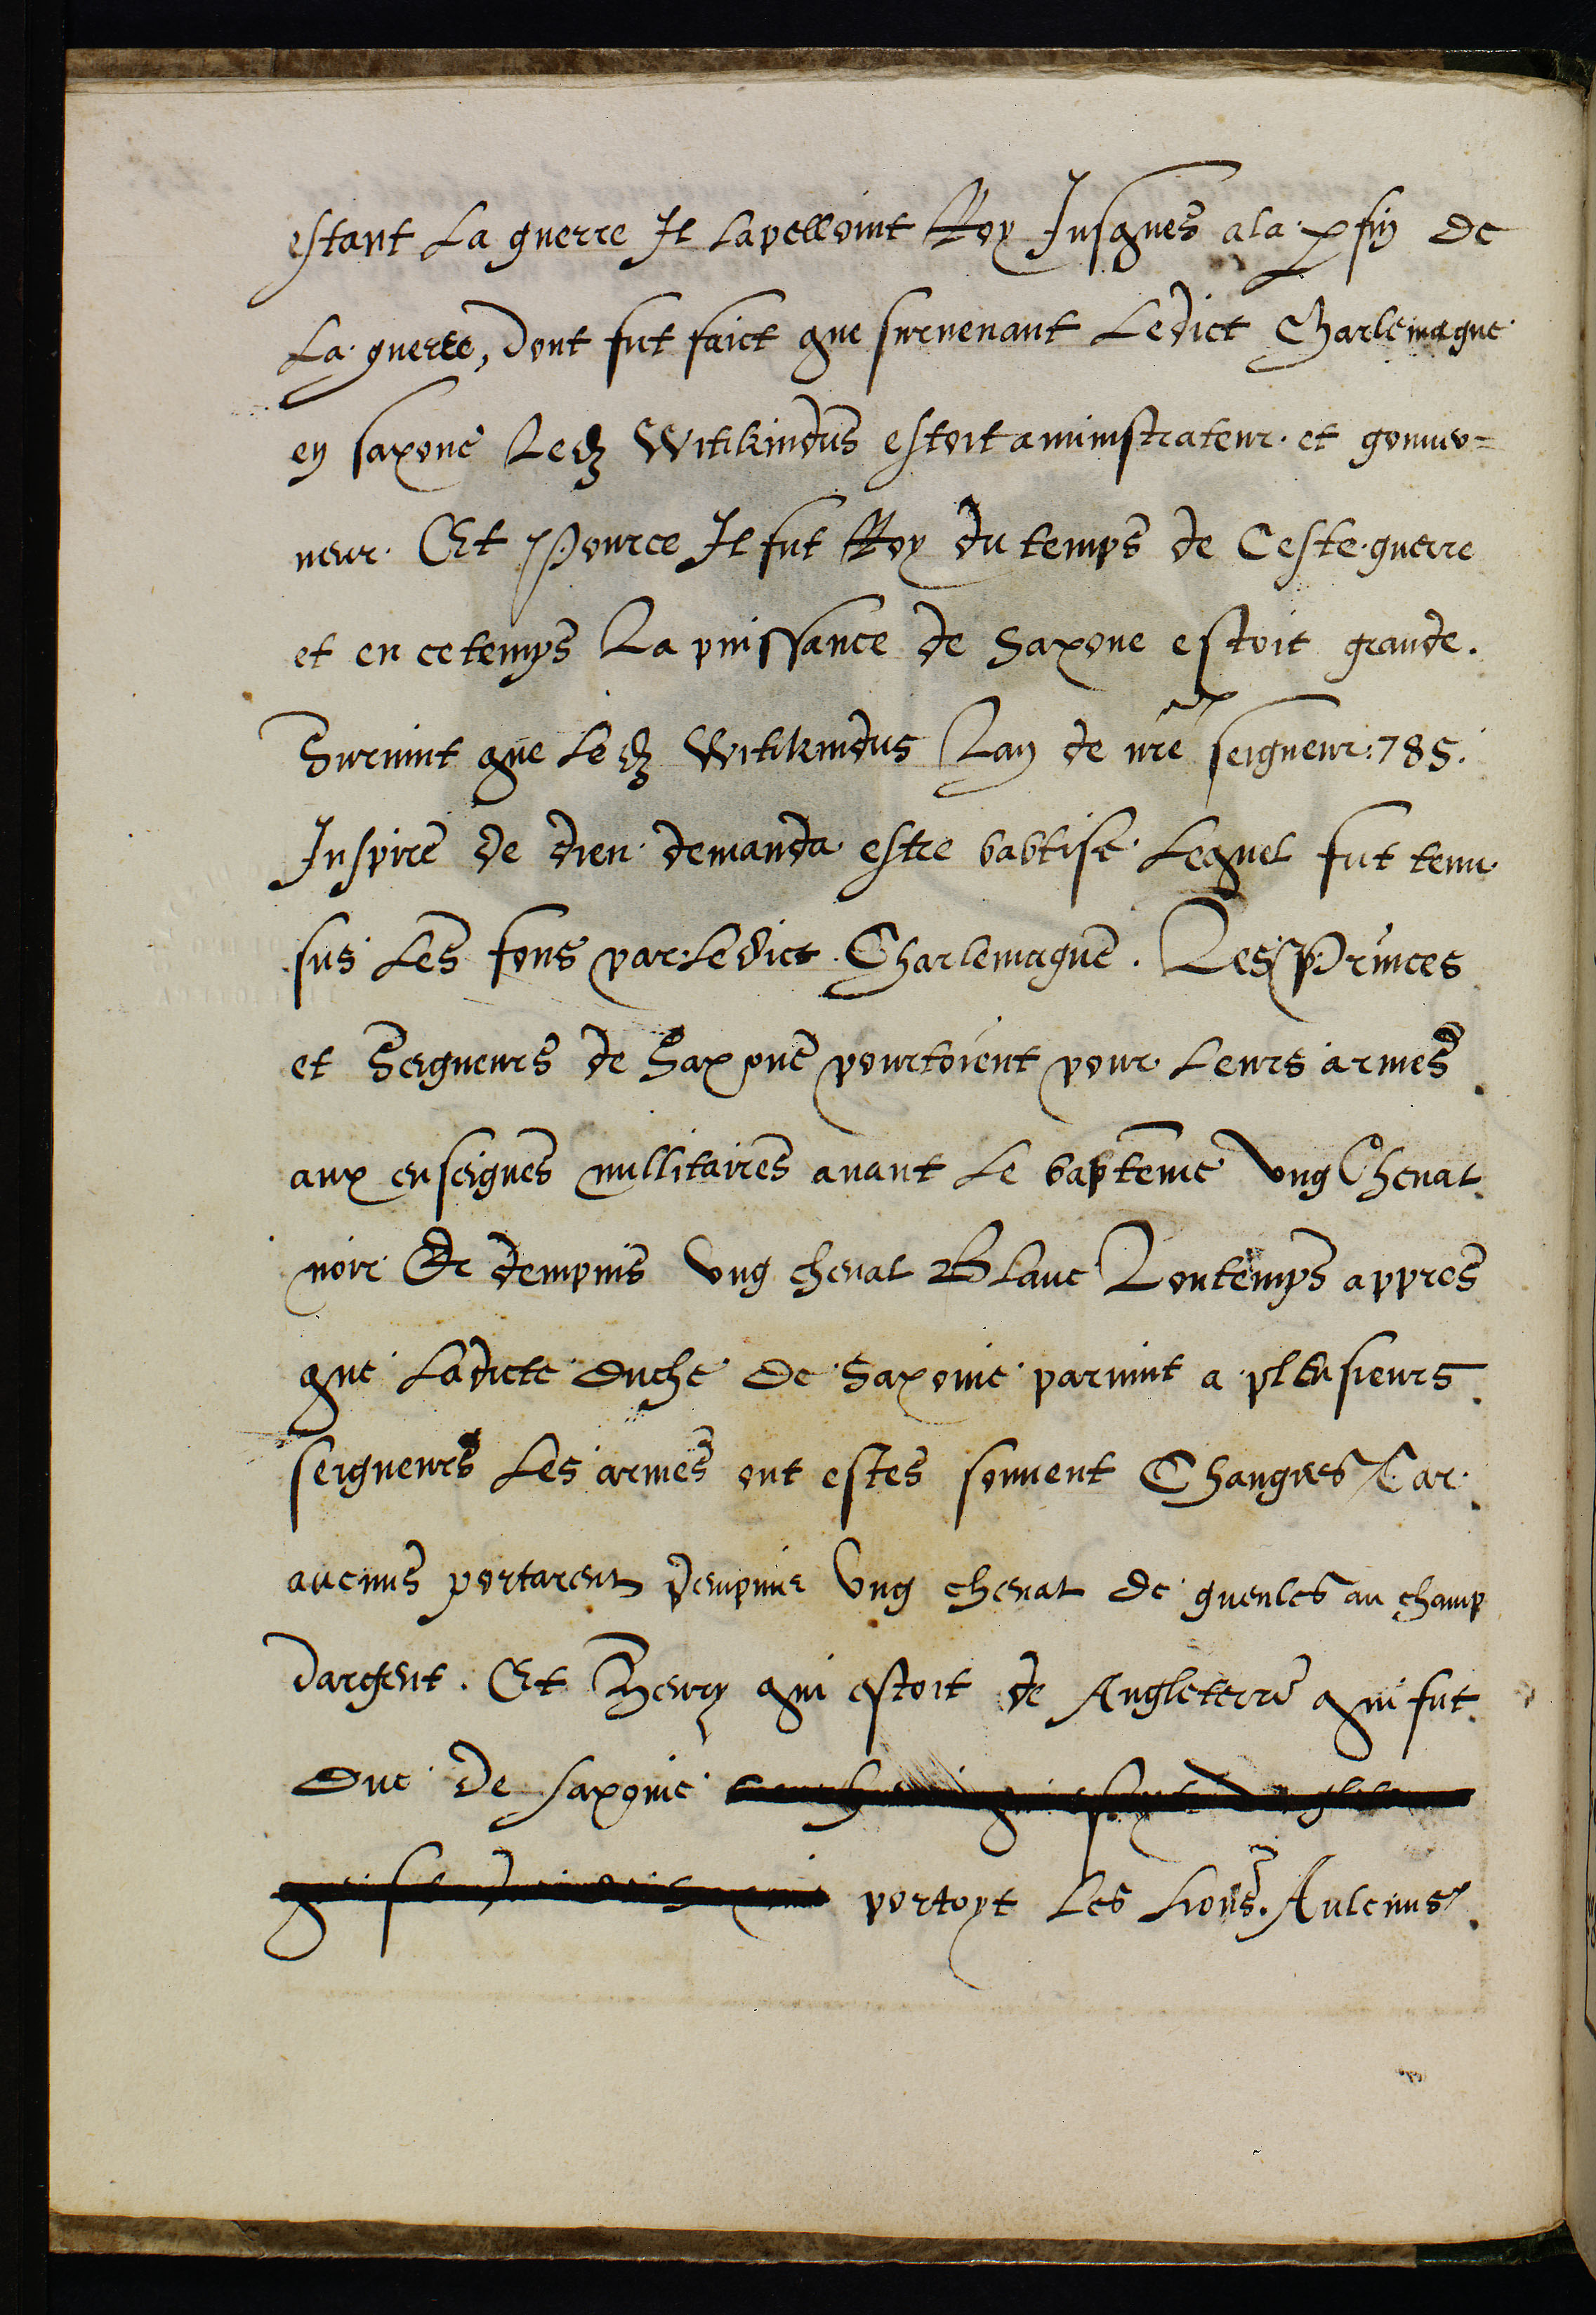 estant La guerre Il lapelloint Roy Jusques a la ꝑfin de
La guerre, dont fut faict que suruenant Ledict Charlemagne
en saxone Ledz Witikindus estoit aministrateur et gouuer=
neur. Et Pource Il fut Roy du temps de Ceste guerre
et en ce temps La puissance de Saxone estoit grande.
Suruint que Ledz Witikindus Lan de nrẽ seigneur: 785.
Inspire de dieu demanda estre babtise Lequel fut tenu
sus Les fons par Ledict Charlemagne. Les Princes
et Seigneurs de Saxone pourtoient pour Leurs armes
aux enseignes millitaires auant Le bapteme Vng Cheual
noir Et dempuis Vng cheual Blanc Lontemps appres
que Ladicte duche de Saxonie paruint a pleusieurs
seigneurs Les armes ont estes souuent Changees Car
aucuns portarent dempuis Vng cheual de gueules au champ
dargent. Et Henry qui estoit de Angleterre qui fut
duc de saxonie
portoyt Les Lions. Aulcuns